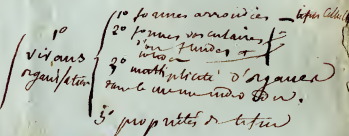 1º
vivans
organisation
1º formes arrondies —
2º formes vasculaires,
d'où fluides
3º multiplicité d'organes
dans le même individu.
5º propriétés de tissu